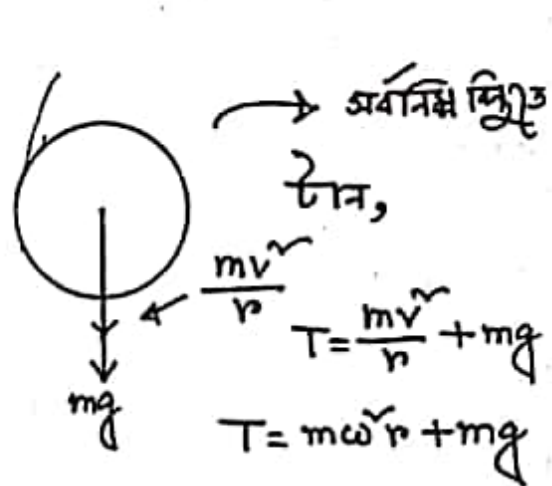 সর্বনিম্ন বিন্দুতে
টান,
mv²/r
T = mv²/r + mg
mg
T = mω²r + mg